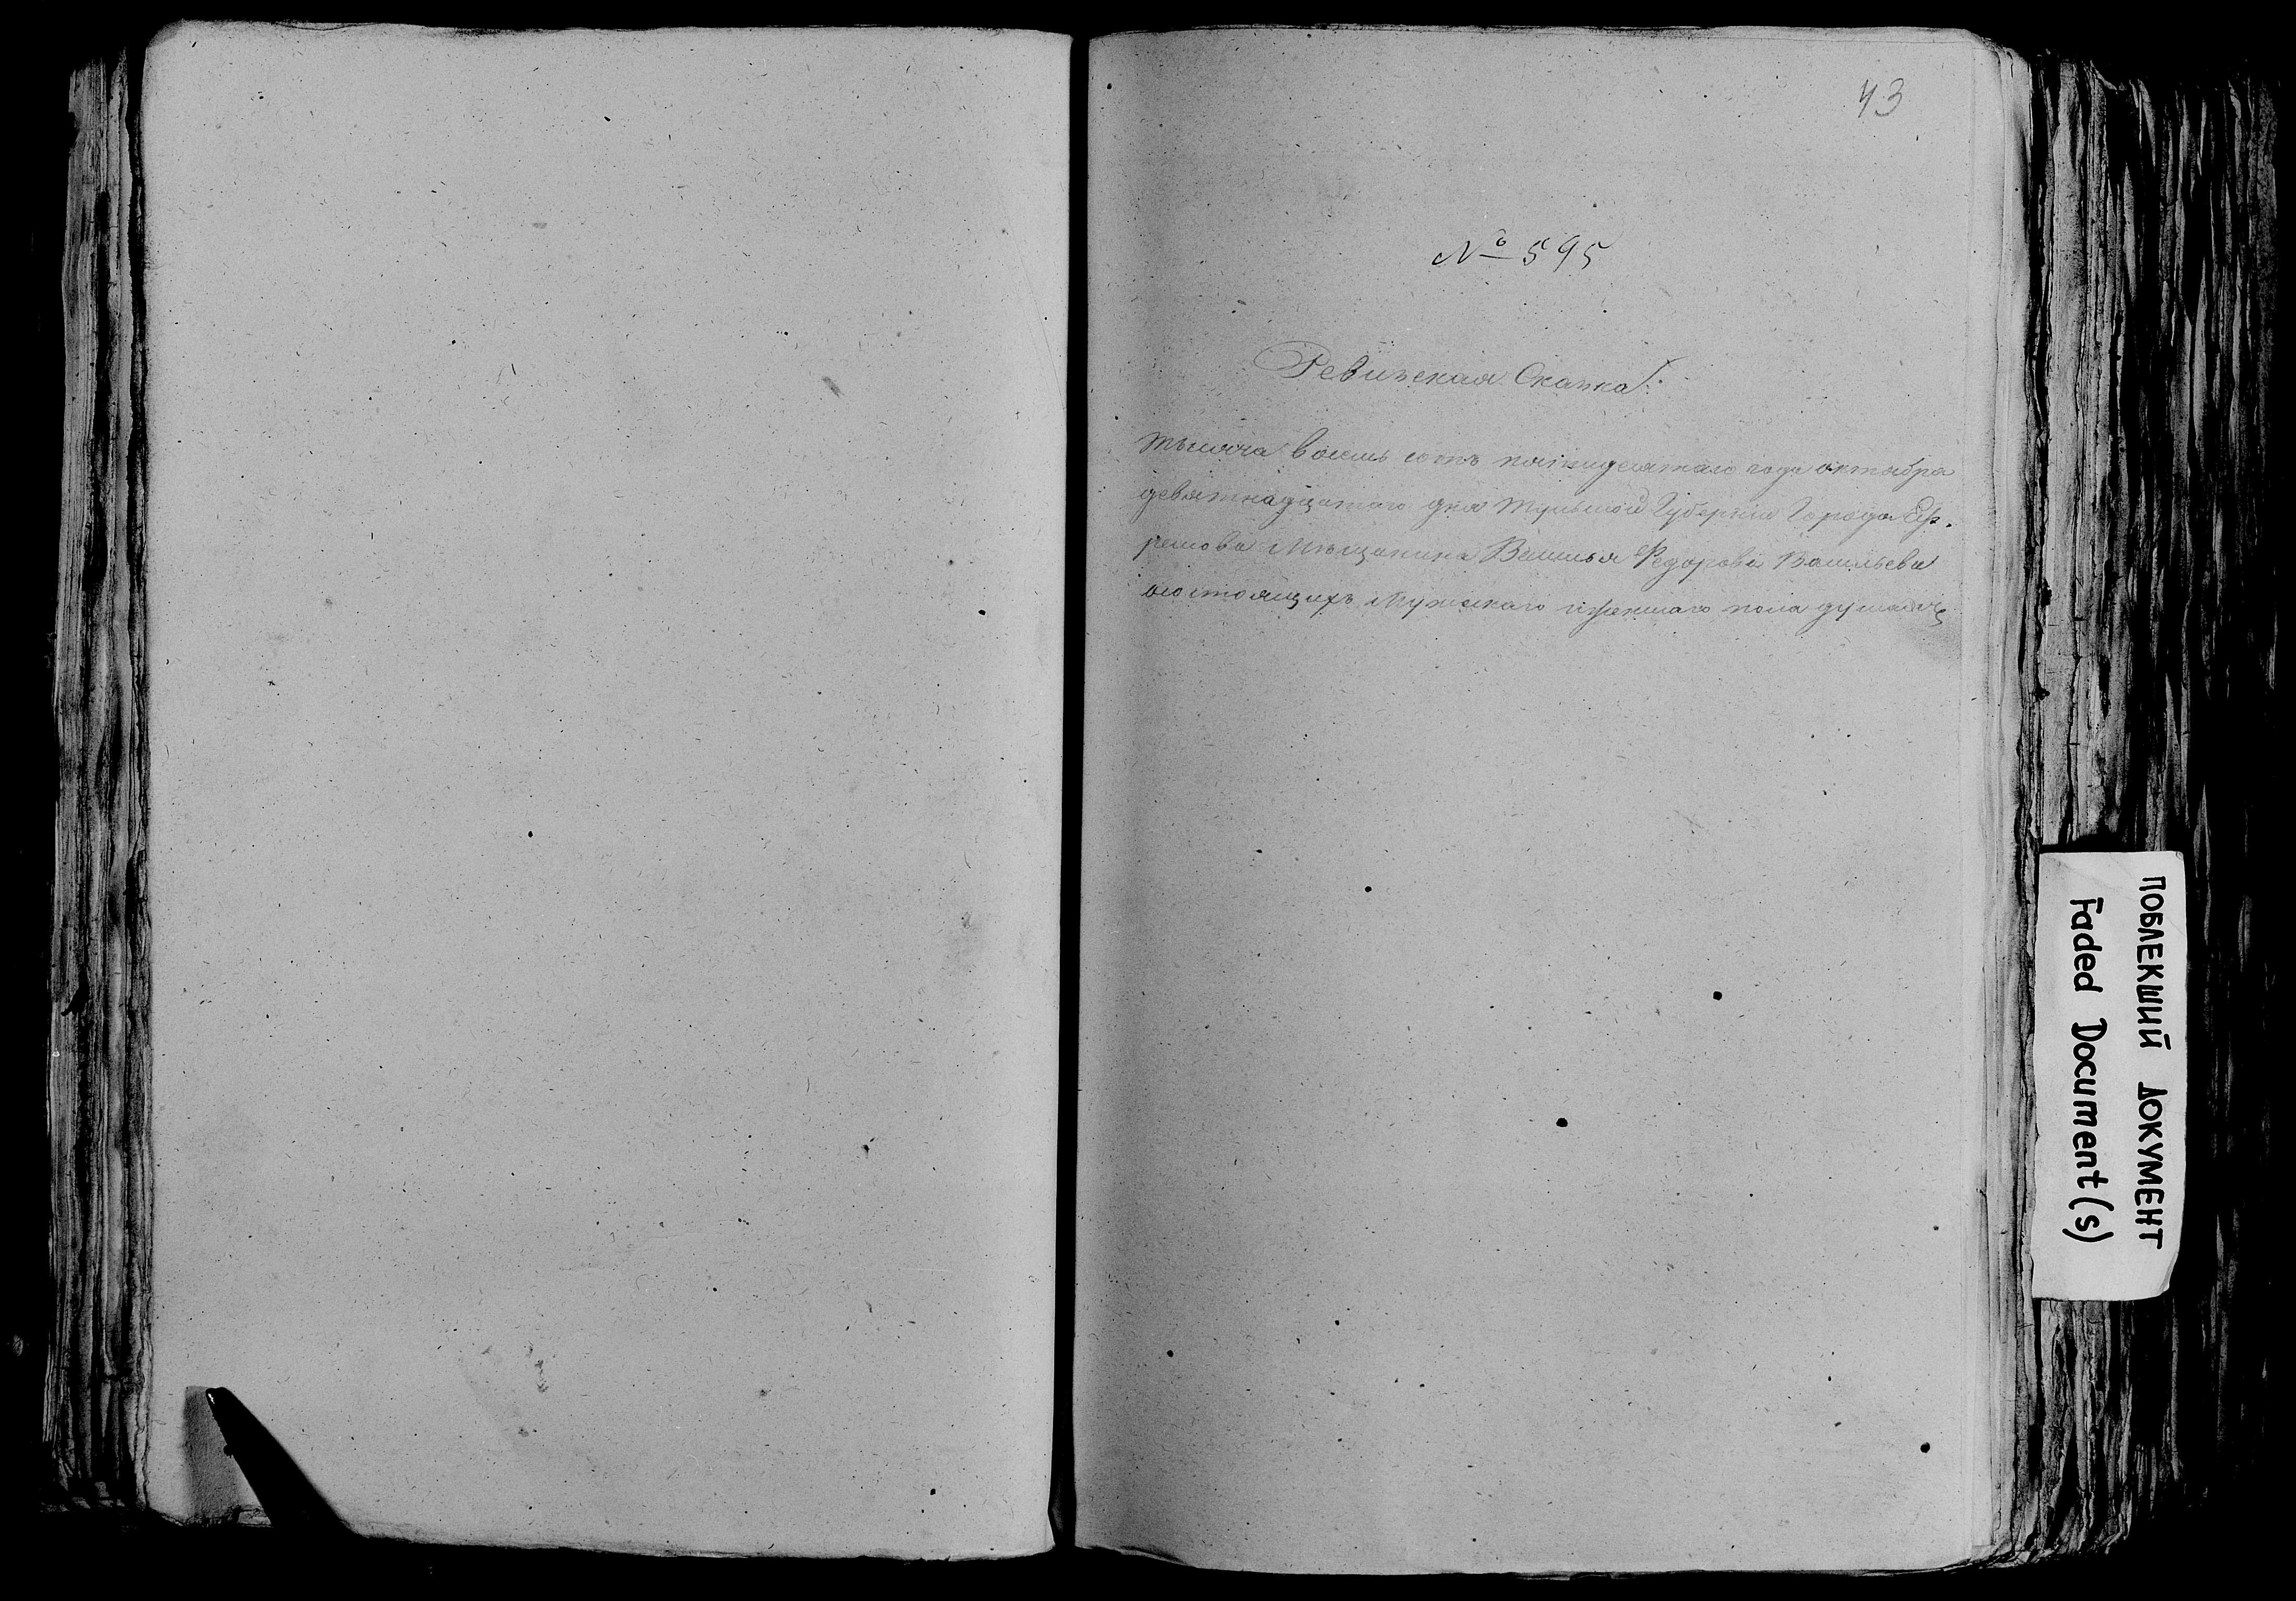 43
№ 595
Ревизская Сказка.
Тысяча восемь сотъ пятидесятаго года октября
девятнадцатого дня Тульской Губерніи Города Еф.
ремова Мѣщанина Василья Федорова Васильева
состоящихъ Мужескаго и женскаго пола душахъ
ПОБЛЕКШИЙ ДОКУМЕНТ
Faded Document(s)